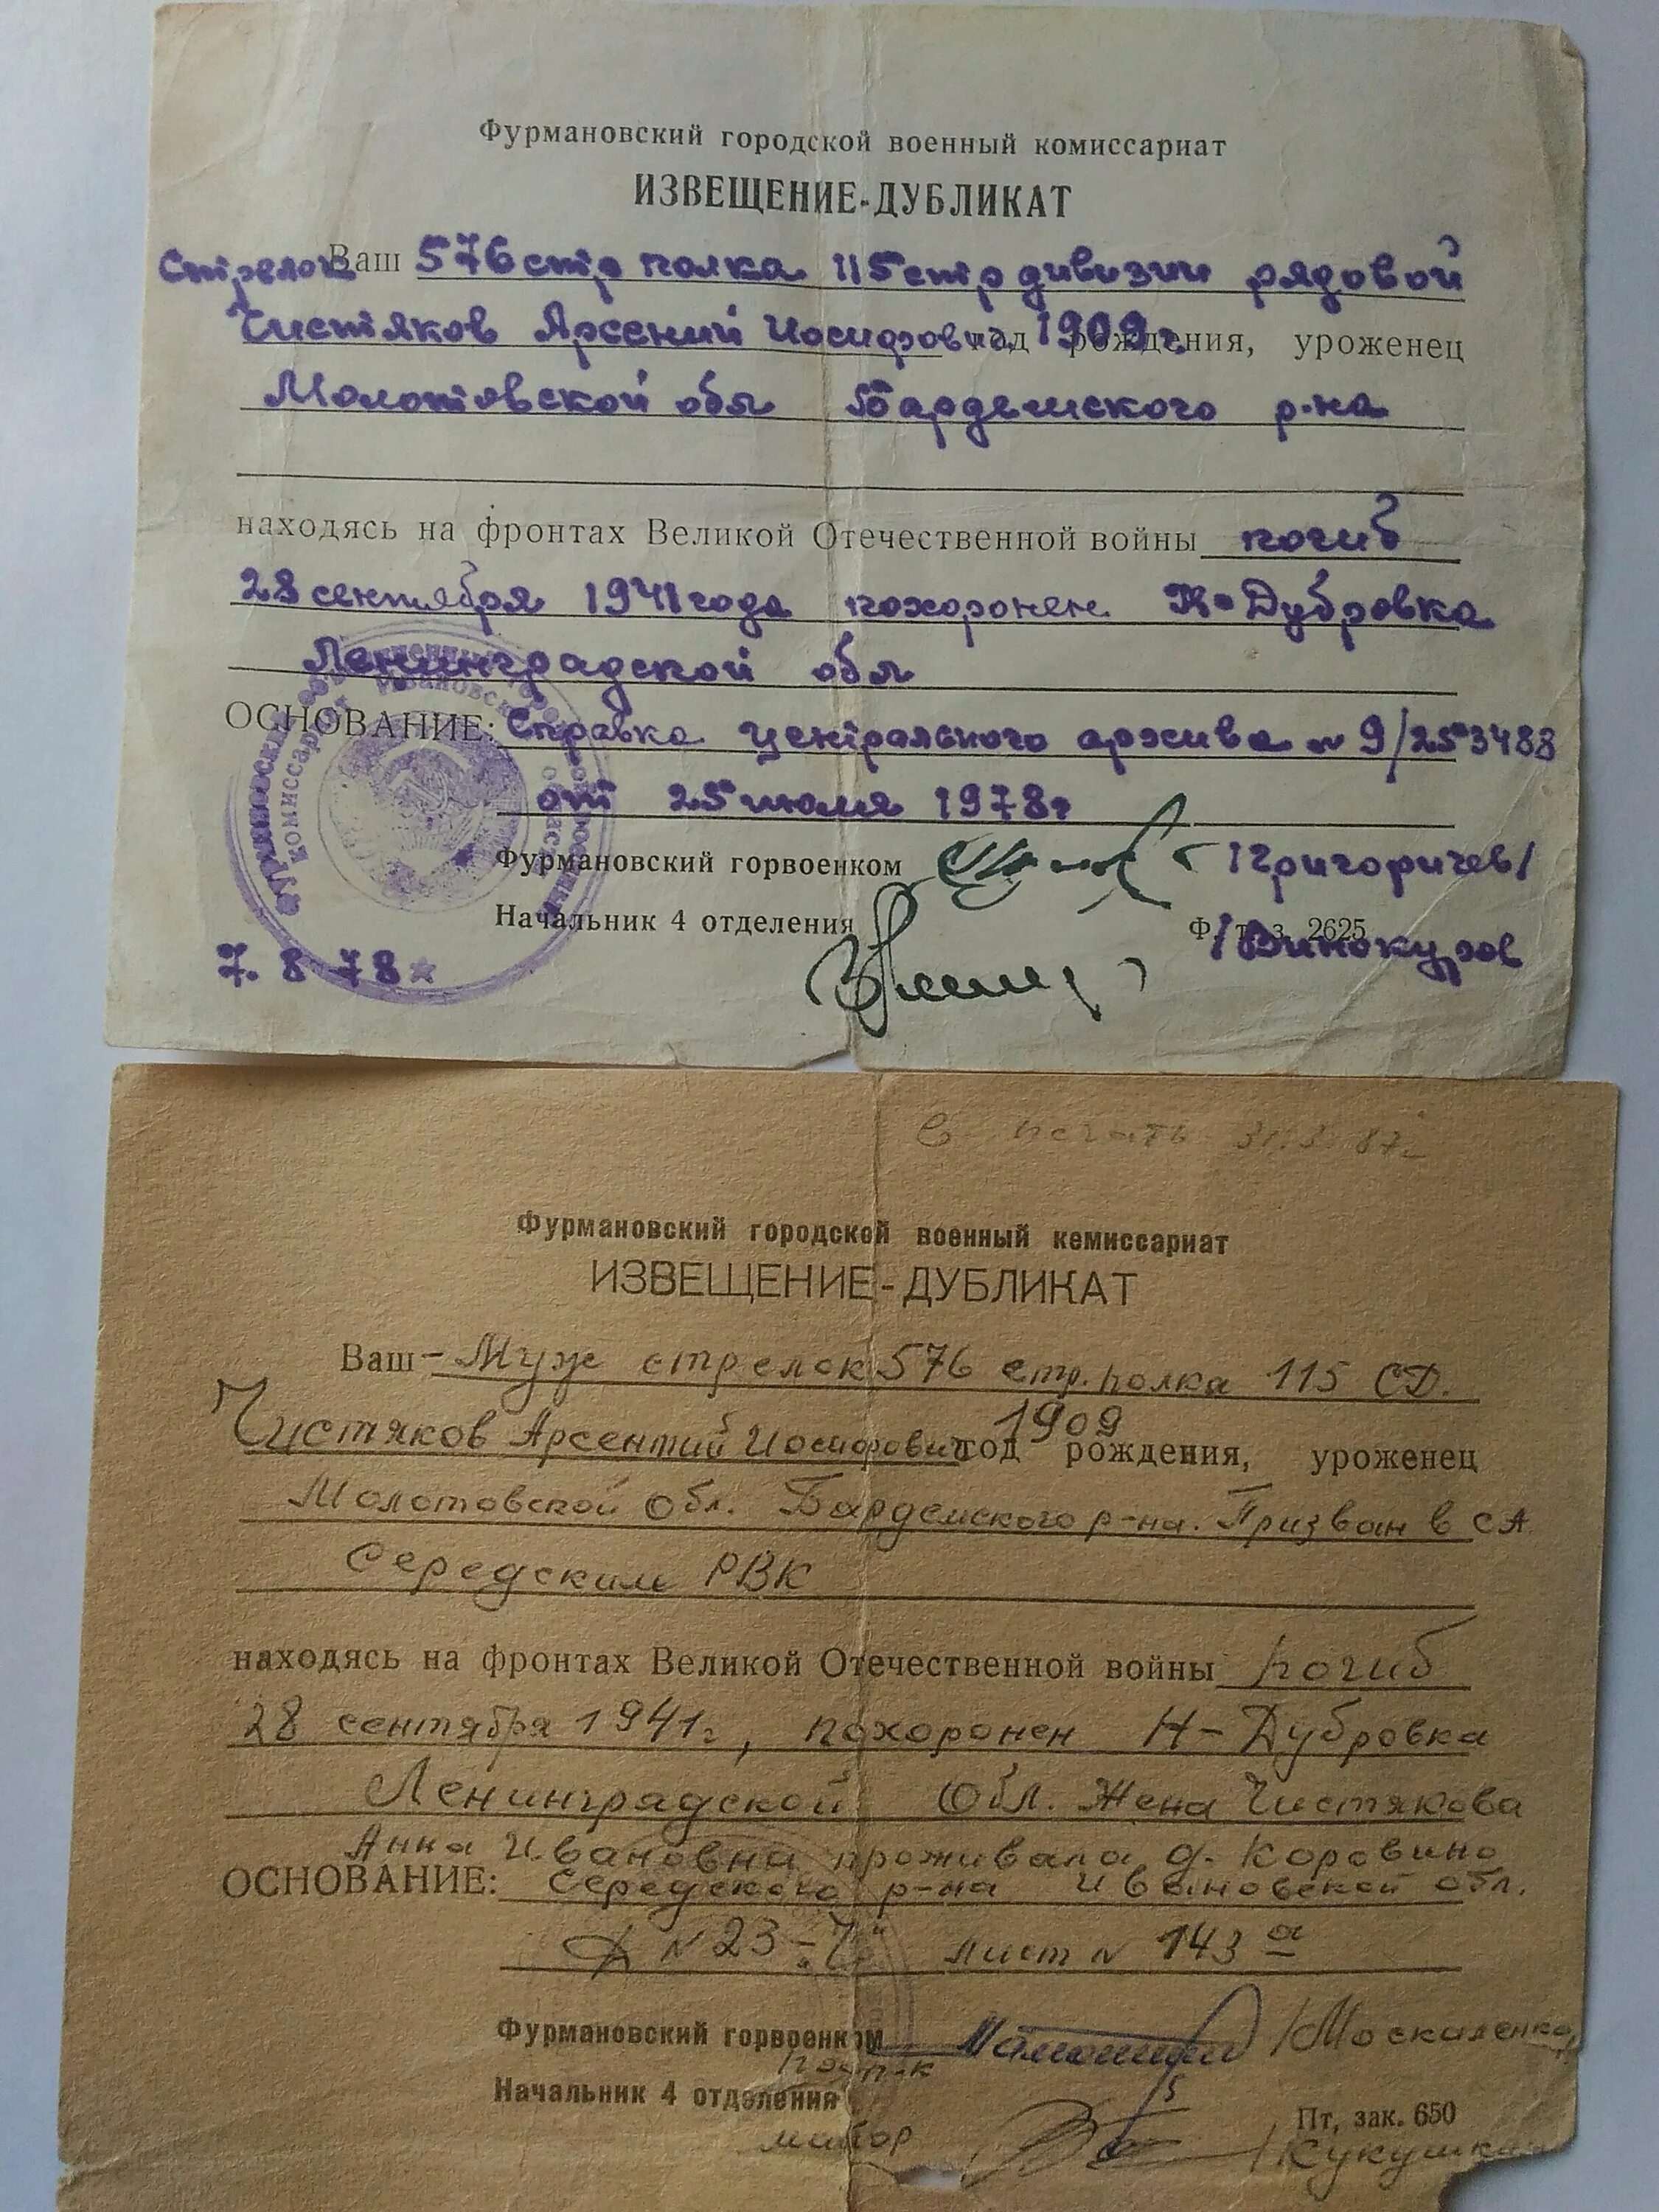 Фурмановский городской военный комиссариат
ИЗВЕЩЕНИЕ-ДУБЛИКАТ
Стрелок Ваш 576 стр полка 115 стр дивизии рядовой
Чистяков Арсений Иосифович год 1909 г. рождения, уроженец
Молотовской обл Бардемского р-на
находясь на фронтах Великой Отечественной войны погиб
28 сентября 1941 года похоронен Н-Дубровка
Ленинградской обл
ОСНОВАНИЕ: Справка центрального архива № 9/253488
от 25 июля 1978 г
Фурмановский горвоенком /Григоричев/
Начальник 4 отделения Ф. т. з. 2625
/Винокуров
7. 8 78
в печать 31.3.87г
Фурмановский городской военный кемиссариат
ИЗВЕЩЕНИЕ-ДУБЛИКАТ
Ваш - Муж стрелок 576 стр. полка 115 СД.
Чистяков Арсентий Иосифович 1909 год рождения, уроженец
Молотовской Обл. Бардемского р-на. Призван в СА
Середским РВК
находясь на фронтах Великой Отечественной войны погиб
28 сентября 1941г, похоронен Н-Дубровка
Ленинградской Обл. Жена Чистякова
Анна Ивановна проживала д. Коровино
ОСНОВАНИЕ: Середского р-на Ивановской обл.
Д № 23 - лист № 143 а
Фурмановский горвоенком /Москаленко/
п-к
Начальник 4 отделения
Пт, зак. 650
майор /Кукушкин